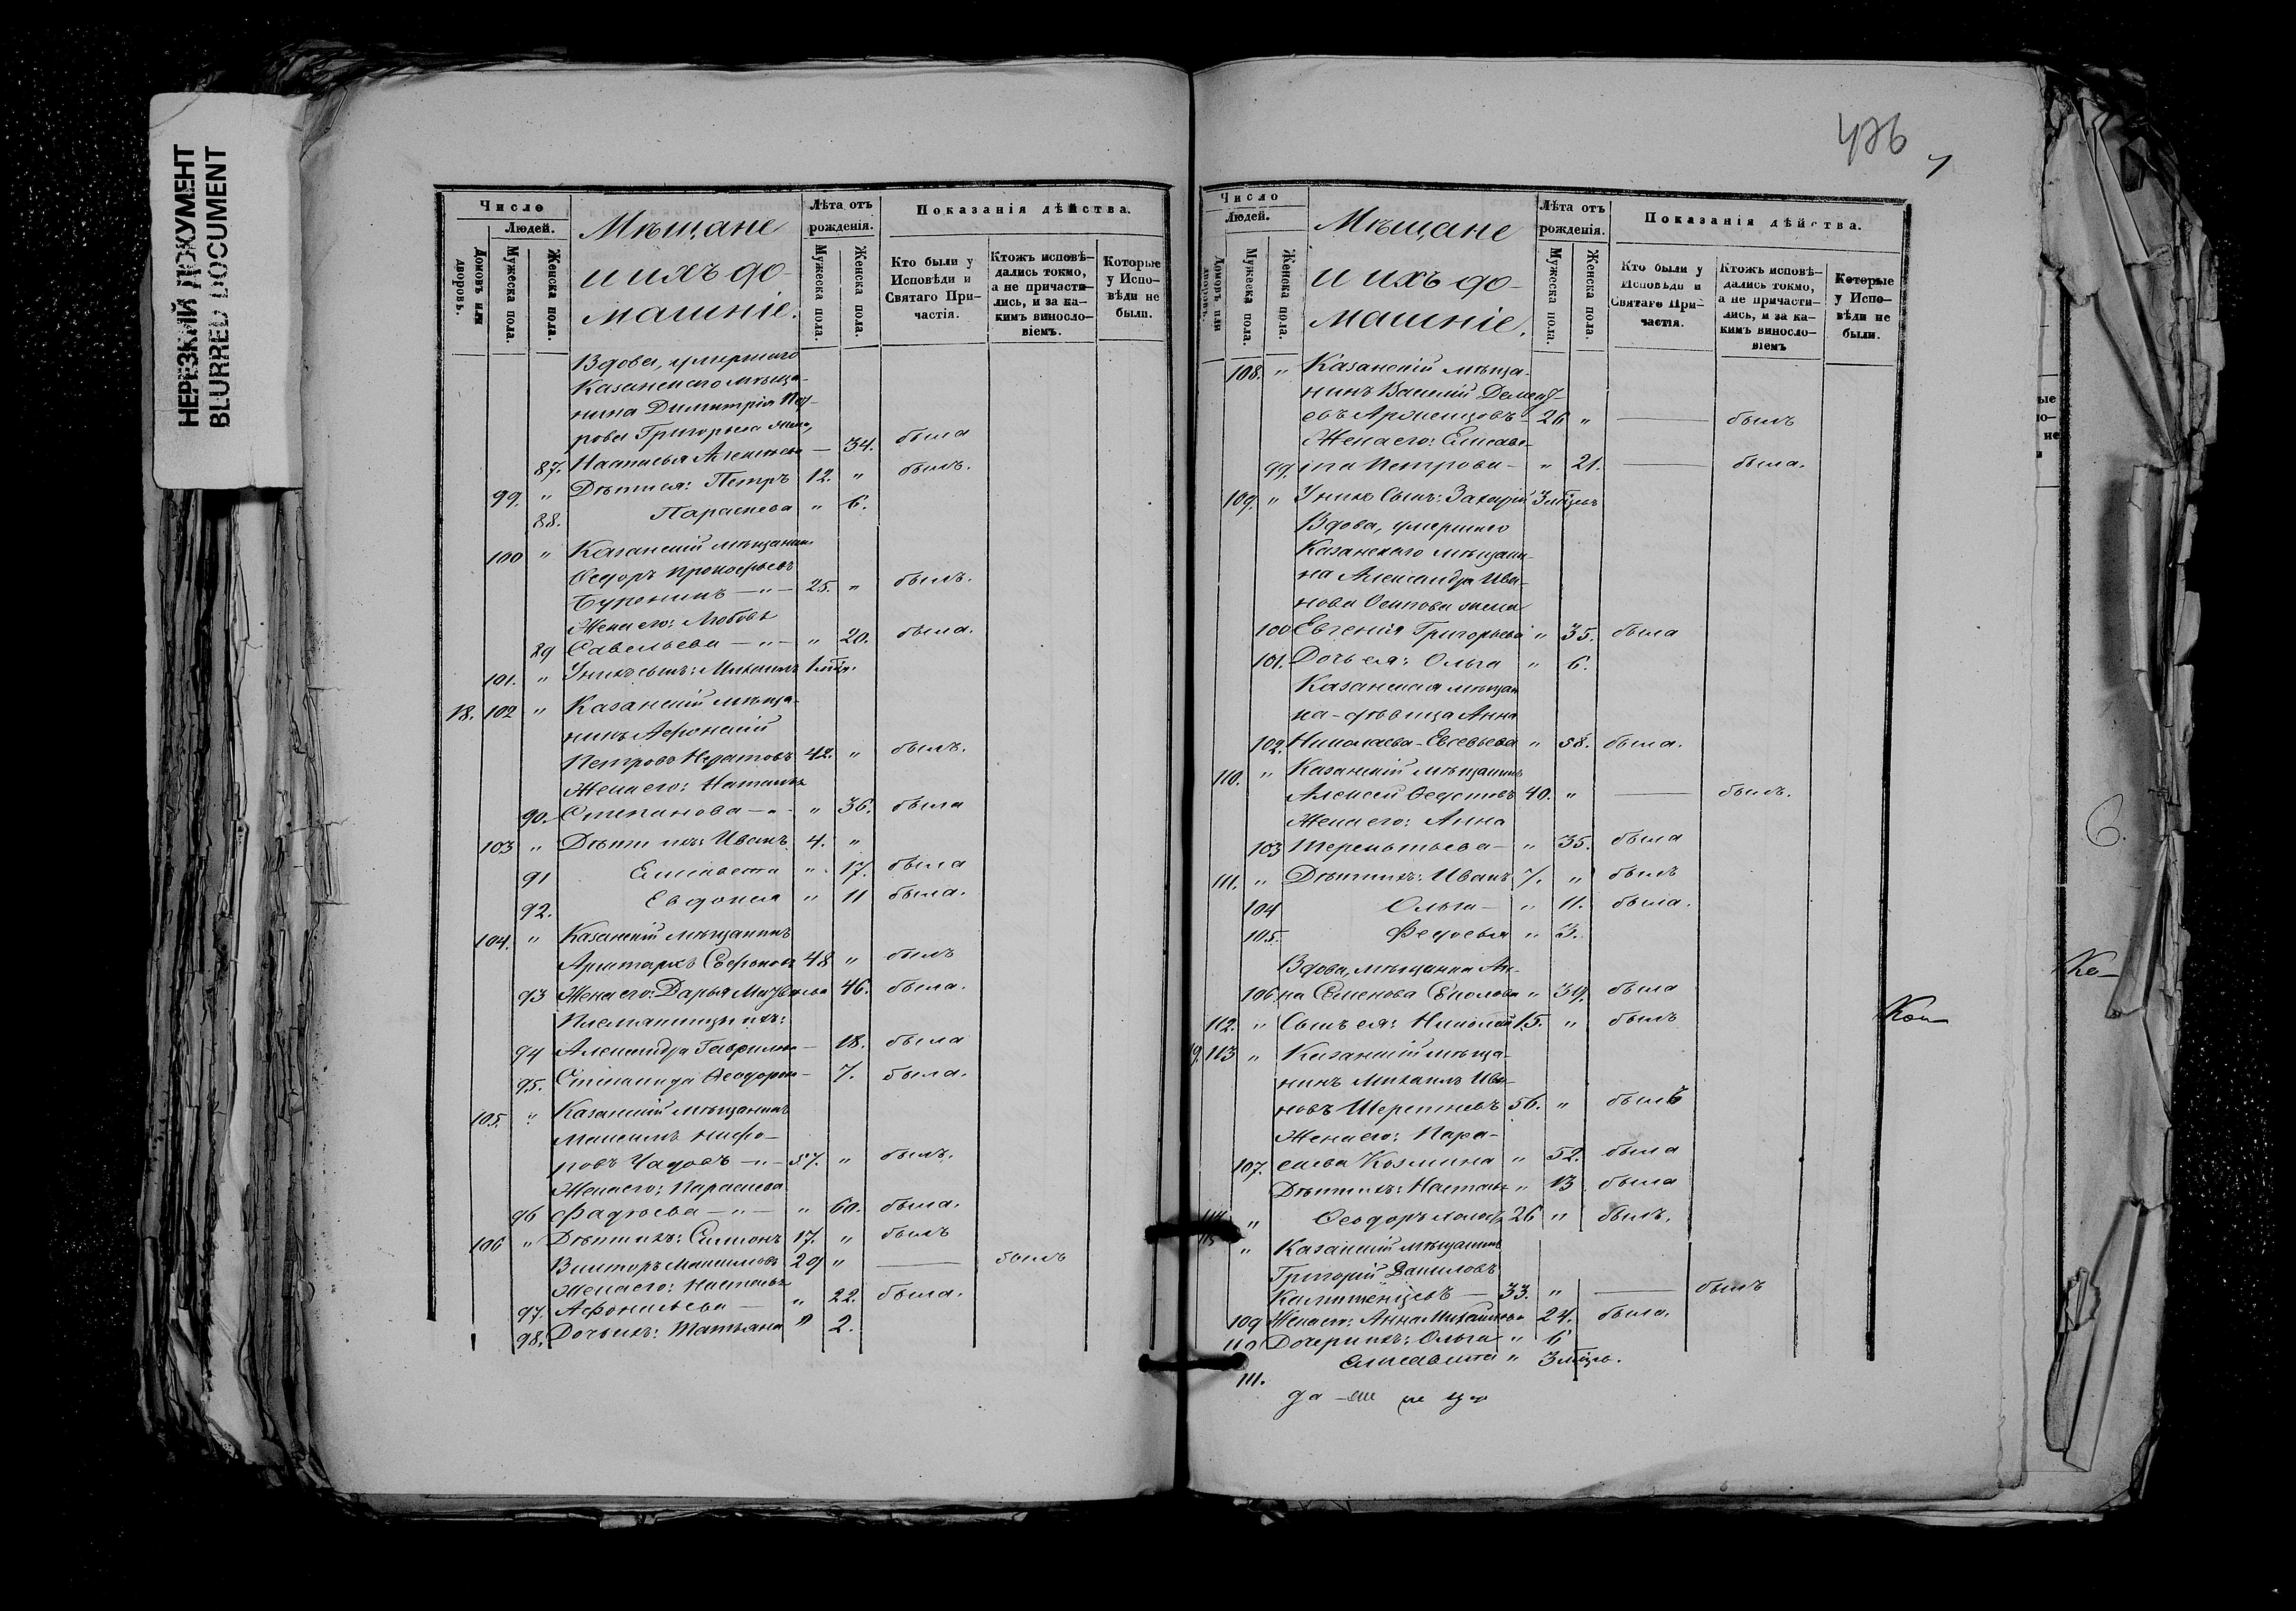 НЕРЕЗКИЙ ДОКУМЕНТ
BLURRED DOCUMENT
Число
Людей.
Домовъ или дворовъ.
Мужеска пола.
Женска пола.
Мѣщане
и ихъ до-
машніе.
Лѣта отъ рожденія.
Мужеска пола.
Женска пола.
Показанія дѣйства.
Кто были у Исповѣди и Святаго Причастія.
Ктожъ исповѣ-
дались токмо,
а не причасти-
лись, и за ка-
кимъ винosло-
віемъ.
Которые
у Испо-
вѣди не
были.
Вдова, умершаго
Казанскаго мѣща-
нина Димитрія Пет-
рова Григорьева жена,
87. Настасья Алексѣева — 34. была
99. " Дѣти ея: Петръ 12. " былъ.
88. Параскева " 6.
100 " Казанскій мѣщанинъ
Ѳедоръ Прокофьевъ
Буренинъ — " — 25. " былъ.
Жена его: Любовь
89 Савельева — " — " 20. была.
101. " У нихъ сынъ: Михаилъ 1 мѣс.
18. 102 " Казанскій мѣща-
нинъ Афонасій
Петровъ 42. " былъ.
Жена его: Наталья
90. Степанова — " — " 36. была
103 " Дѣти ихъ: Иванъ 4. "
91 Елисавета " 17. была
92. Евдокія " 11 была.
104. " Казанскій мѣщанинъ
Аристархъ 48 " былъ
93 Жена его: Дарья Матвѣева 46. была.
Племянницы ихъ:
94 Александра Гаврилова — 18. была
95. Степанида Ѳеодорова — 7. была.
105. " Казанскій мѣщанинъ
Максимъ Никфо-
ровъ Чадовъ — " — 57. " былъ.
Жена его: Параскева
96 Фадѣева — " — " 60. была.
106 " Дѣти ихъ: Симонъ 17. " былъ
Викторъ Максимовъ 29 " — былъ
Жена его: Наталья
97. Афонасьева — " 22. была.
98. Дочь ихъ: Татьяна " 2.
476
7
Число
Людей.
Домовъ или дворовъ.
Мужеска пола.
Женска пола.
Мѣщане
и ихъ до-
машніе.
Лѣта отъ рожденія.
Мужеска пола.
Женска пола
Показанія дѣйства.
Кто были у
Исповѣди и
Святаго При-
частія.
Ктожъ исповѣ-
дались токмо,
а не причасти-
лись, и за ка-
кимъ винosло-
віемъ
Которые
у Испо-
вѣди не
были.
108. " Казанскій мѣща-
нинъ Василій Дементь-
евъ 26 " — былъ
Жена его: Елисаве-
99. та Петрова — " 21. — была.
109. " У нихъ сынъ: Захарій 3 мѣсяцевъ
Вдова, умершаго
Казанскаго мѣщани-
на Александра Ива-
нова Осипова жена
100 Евгенія Григорьева " 35. была
101. Дочь ея: Ольга " 6.
Казанская мѣщан
ка-дѣвица Анна
102. Николаева-Евсевьева " 58. была.
110. " Казанскій мѣщанинъ
Алексей 40. " — былъ.
Жена его: Анна
103 Терентьева — " 35. была
111. " Дѣти ихъ: Иванъ 7. " былъ
104 Ольга — " 11. была.
105. Федосья " 3.
Вдова, мѣщанка Ан-
106 на Семенова " 39. была
112. " Сынъ ея: Николай 15. " былъ
19. 113 " Казанскій мѣща-
нинъ Михаилъ Ива-
новъ Шереметевъ 56. " былъ
Жена его: Пара-
107. скева Козмина " 52. была
Дѣти ихъ: Наталья " 13 была
114 " Ѳеодоръ 26 " былъ.
115 " Казанскій мѣщанинъ
Григорій Даниловъ
33. " — былъ
109 Жена его: Анна Михайлова 24. была.
110 Дочери ихъ: Ольга " 6
111. Елисавета " 3 мѣсяц.
Кои
Ко-
6.